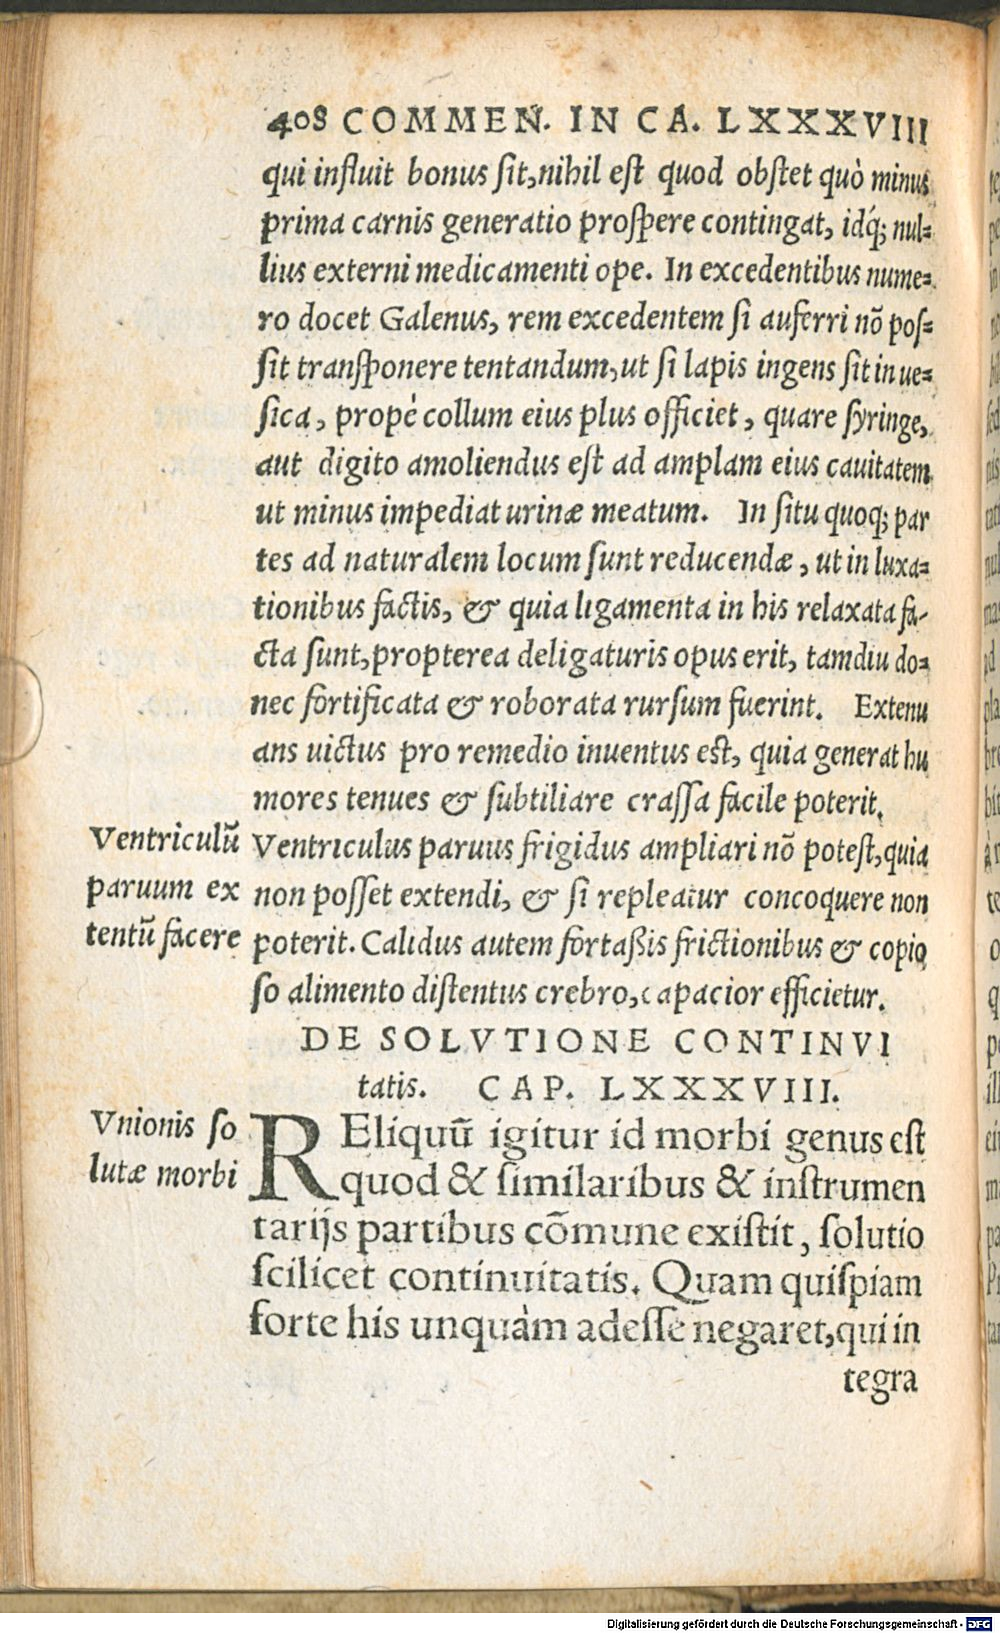 408 COMMEN. IN CA. LXXXVIII
qui influit bonus sit, nihil est quod obstet quò minus
prima carnis generatio prospere contingat, idq́; nul-
lius externi medicamenti ope. In excedentibus nume-
ro docet Galenus, rem excedentem si auferri nõ pos-
sit transponere tentandum, ut si lapis ingens sit in ue-
sica, propè collum eius plus officiet, quare syringe,
aut digito amoliendus est ad amplam eius cauitatem
ut minus impediat urinæ meatum. In situ quoq; par
tes ad naturalem locum sunt reducendæ, ut in luxa-
tionibus factis, & quia ligamenta in his relaxata fa-
cta sunt, propterea deligaturis opus erit, tamdiu do-
nec fortificata & roborata rursum fuerint. Extenu
ans uictus pro remedio inuentus est, quia generat hu
mores tenues & subtiliare crassa facile poterit.
Ventriculũ
paruum ex
tentũ facere
Ventriculus paruus frigidus ampliari nõ potest, quia
non posset extendi, & si repleatur concoquere non
poterit. Calidus autem fortaßis frictionibus & copio
so alimento distentus crebro, capacior efficietur.
DE SOLVTIONE CONTINVI
tatis. CAP. LXXXVIII.
Vnionis so
lutæ morbi
REliquũ igitur id morbi genus est
quod & similaribus & instrumen
tarijs partibus cõmune existit, solutio
scilicet continuitatis. Quam quispiam
forte his unquàm adesse negaret, qui in
tegra
Digitalisierung gefördert durch die Deutsche Forschungsgemeinschaft - DFG